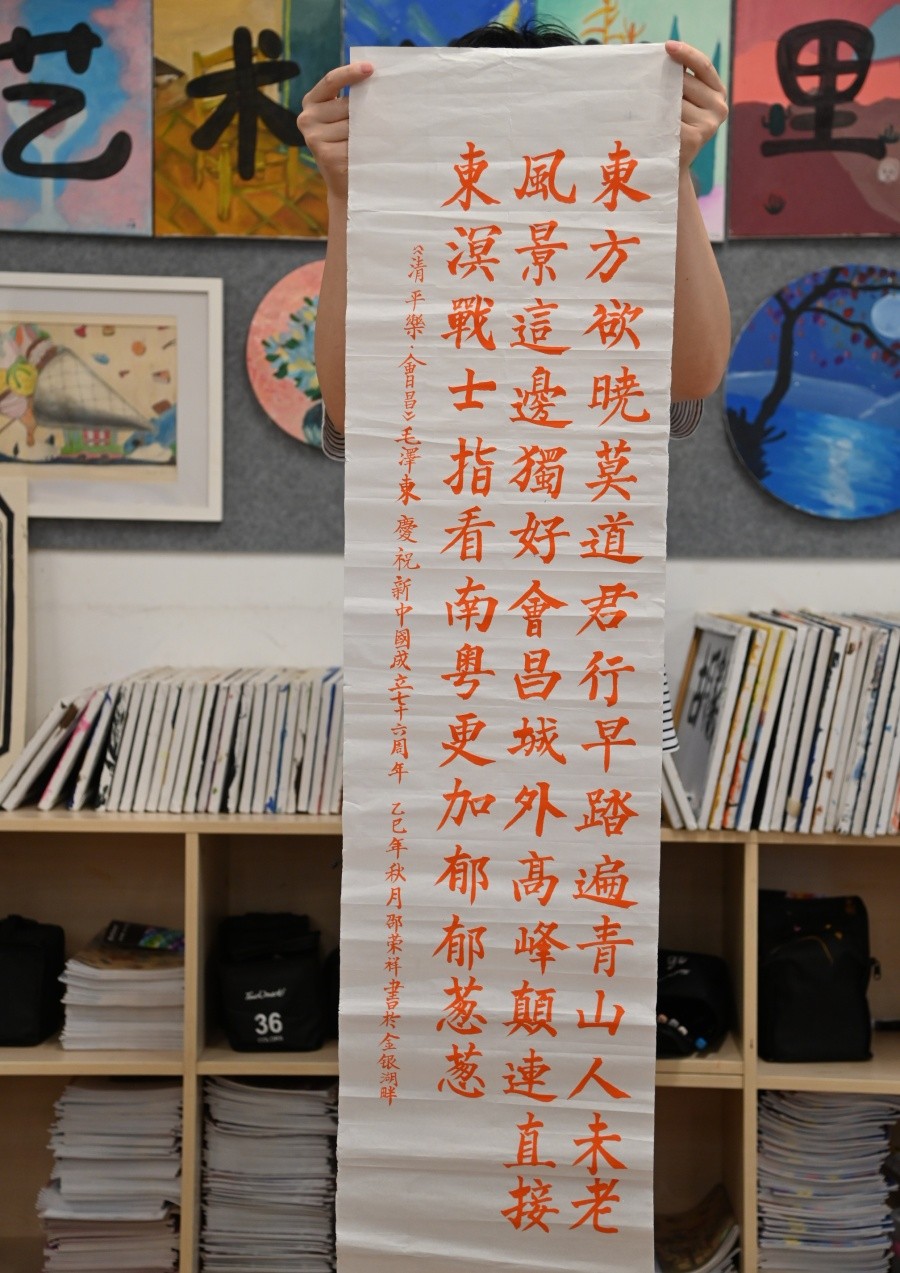 艺术 里
東方欲曉莫道君行早踏遍青山人未老
風景這邊獨好會昌城外高峰顛連直接
東溟戰士指看南粵更加郁郁葱葱
《清平樂·會昌》毛澤東 慶祝新中國成立七十六周年 乙巳年秋月邵荣祥書於金銀湖畔
36